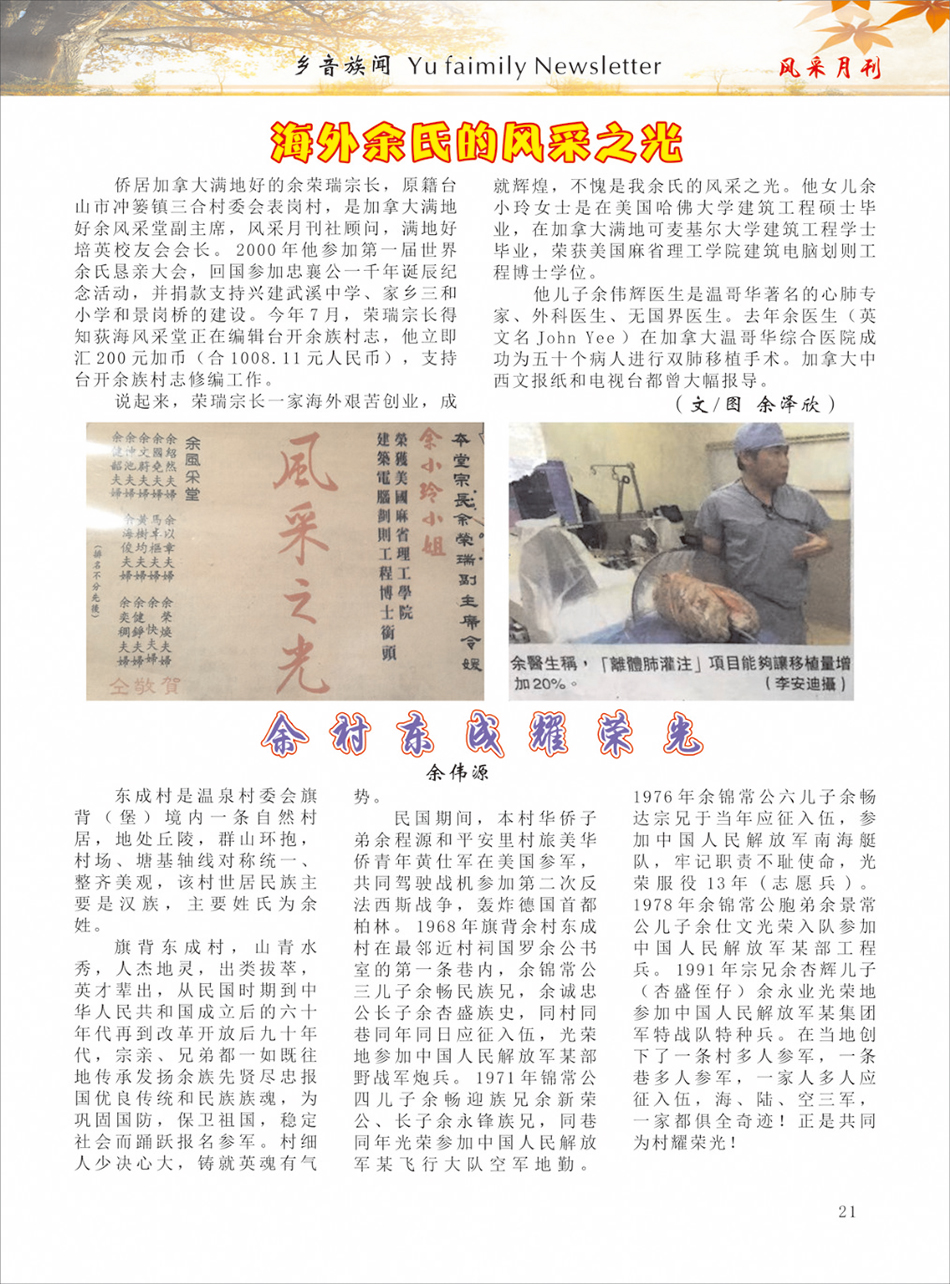 乡音族闻 Yu faimily Newsletter
风采月刊
海外余氏的风采之光
侨居加拿大满地好的余荣瑞宗长，原籍台
山市冲蒌镇三合村委会表岗村，是加拿大满地
好余风采堂副主席，风采月刊社顾问，满地好
培英校友会会长。2000年他参加第一届世界
余氏恳亲大会，回国参加忠襄公一千年诞辰纪
念活动，并捐款支持兴建武溪中学、家乡三和
小学和景岗桥的建设。今年7月，荣瑞宗长得
知荻海风采堂正在编辑台开余族村志，他立即
汇200元加币（合1008.11元人民币），支持
台开余族村志修编工作。
说起来，荣瑞宗长一家海外艰苦创业，成
就辉煌，不愧是我余氏的风采之光。他女儿余
小玲女士是在美国哈佛大学建筑工程硕士毕
业，在加拿大满地可麦基尔大学建筑工程学士
毕业，荣获美国麻省理工学院建筑电脑划则工
程博士学位。
他儿子余伟辉医生是温哥华著名的心肺专
家、外科医生、无国界医生。去年余医生（英
文名John Yee）在加拿大温哥华综合医院成
功为五十个病人进行双肺移植手术。加拿大中
西文报纸和电视台都曾大幅报导。
（文/图 余泽欣）
本堂宗長余榮瑞副主席令媛
余小玲小姐
榮獲美國麻省理工學院
建築電腦劃則工程博士銜頭
風采之光
余風采堂
余紹然夫婦 余以章夫婦 余榮煥夫婦
余國堯夫婦 馬卓樞夫婦 余快夫婦
余文蔚夫婦 黃樹均夫婦 余健錚夫婦
余沖池夫婦 余海俊夫婦 余奕稠夫婦
余健韶夫婦
（排名不分先後）
仝敬賀
余醫生稱，「離體肺灌注」項目能夠讓移植量增
加20%。 （李安迪攝）
余村东成耀荣光
余伟源
东成村是温泉村委会旗
背（堡）境内一条自然村
居，地处丘陵，群山环抱，
村场、塘基轴线对称统一、
整齐美观，该村世居民族主
要是汉族，主要姓氏为余
姓。
旗背东成村，山青水
秀，人杰地灵，出类拔萃，
英才辈出，从民国时期到中
华人民共和国成立后的六十
年代再到改革开放后九十年
代，宗亲、兄弟都一如既往
地传承发扬余族先贤尽忠报
国优良传统和民族族魂，为
巩固国防，保卫祖国，稳定
社会而踊跃报名参军。村细
人少决心大，铸就英魂有气
势。
民国期间，本村华侨子
弟余程源和平安里村旅美华
侨青年黄仕军在美国参军，
共同驾驶战机参加第二次反
法西斯战争，轰炸德国首都
柏林。1968年旗背余村东成
村在最邻近村祠国罗余公书
室的第一条巷内，余锦常公
三儿子余畅民族兄，余诚忠
公长子余杏盛族史，同村同
巷同年同日应征入伍，光荣
地参加中国人民解放军某部
野战军炮兵。1971年锦常公
四儿子余畅迎族兄余新荣
公、长子余永锋族兄，同巷
同年光荣参加中国人民解放
军某飞行大队空军地勤。
1976年余锦常公六儿子余畅
达宗兄于当年应征入伍，参
加中国人民解放军南海艇
队，牢记职责不耻使命，光
荣服役13年（志愿兵）。
1978年余锦常公胞弟余景常
公儿子余仕文光荣入队参加
中国人民解放军某部工程
兵。1991年宗兄余杏辉儿子
（杏盛侄仔）余永业光荣地
参加中国人民解放军某集团
军特战队特种兵。在当地创
下了一条村多人参军，一条
巷多人参军，一家人多人应
征入伍，海、陆、空三军，
一家都俱全奇迹！正是共同
为村耀荣光！
21